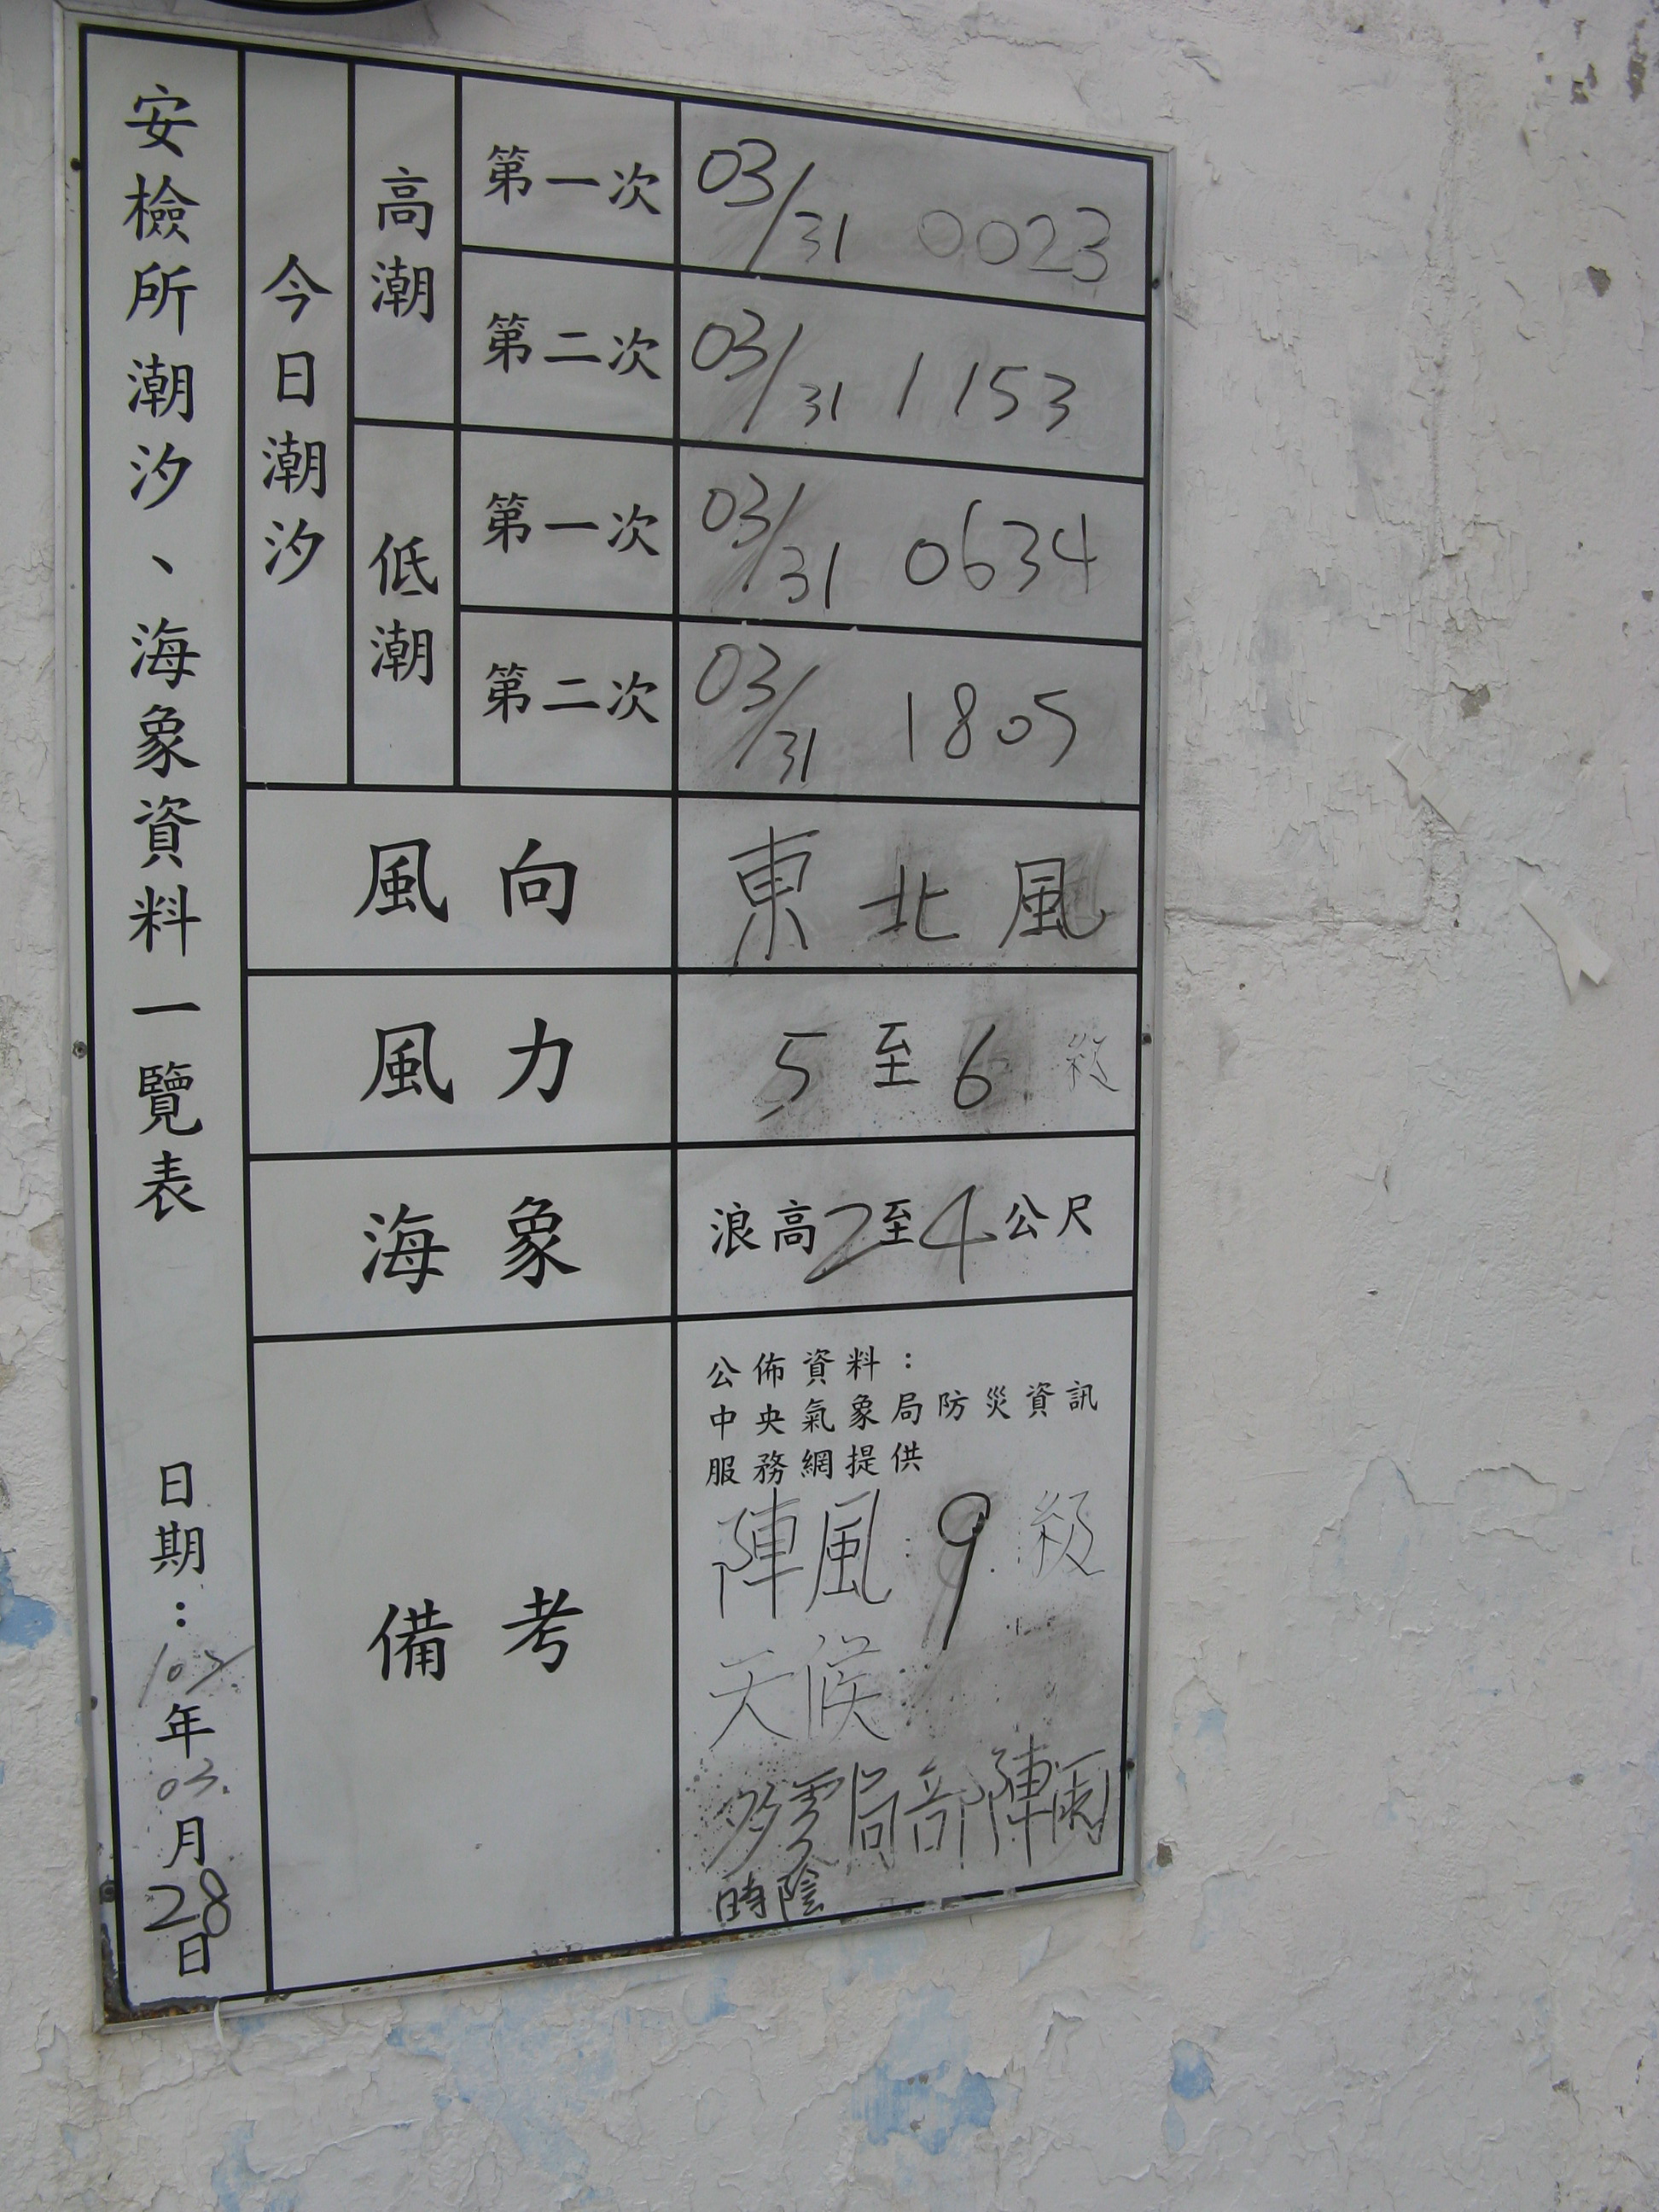 安檢所潮汐、海象資料一覽表
日期：
年03.月28日
今日潮汐
高潮
第一次 03/31 0023
第二次 03/31 1153
低潮
第一次 03/31 0634
第二次 03/31 1805
風向 東北風
風力 5至6級
海象 浪高2至4公尺
備考
公佈資料：
中央氣象局防災資訊
服務網提供
陣風：9級
天候
多雲局部陣雨
時陰